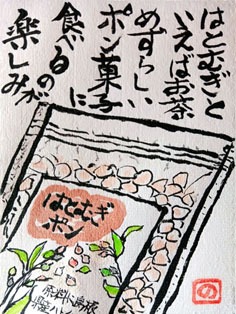 はとむぎと
いえばお茶
めずらしい
ポン菓子
に
食べるのが
楽しみ
はとむぎ
ポン
の